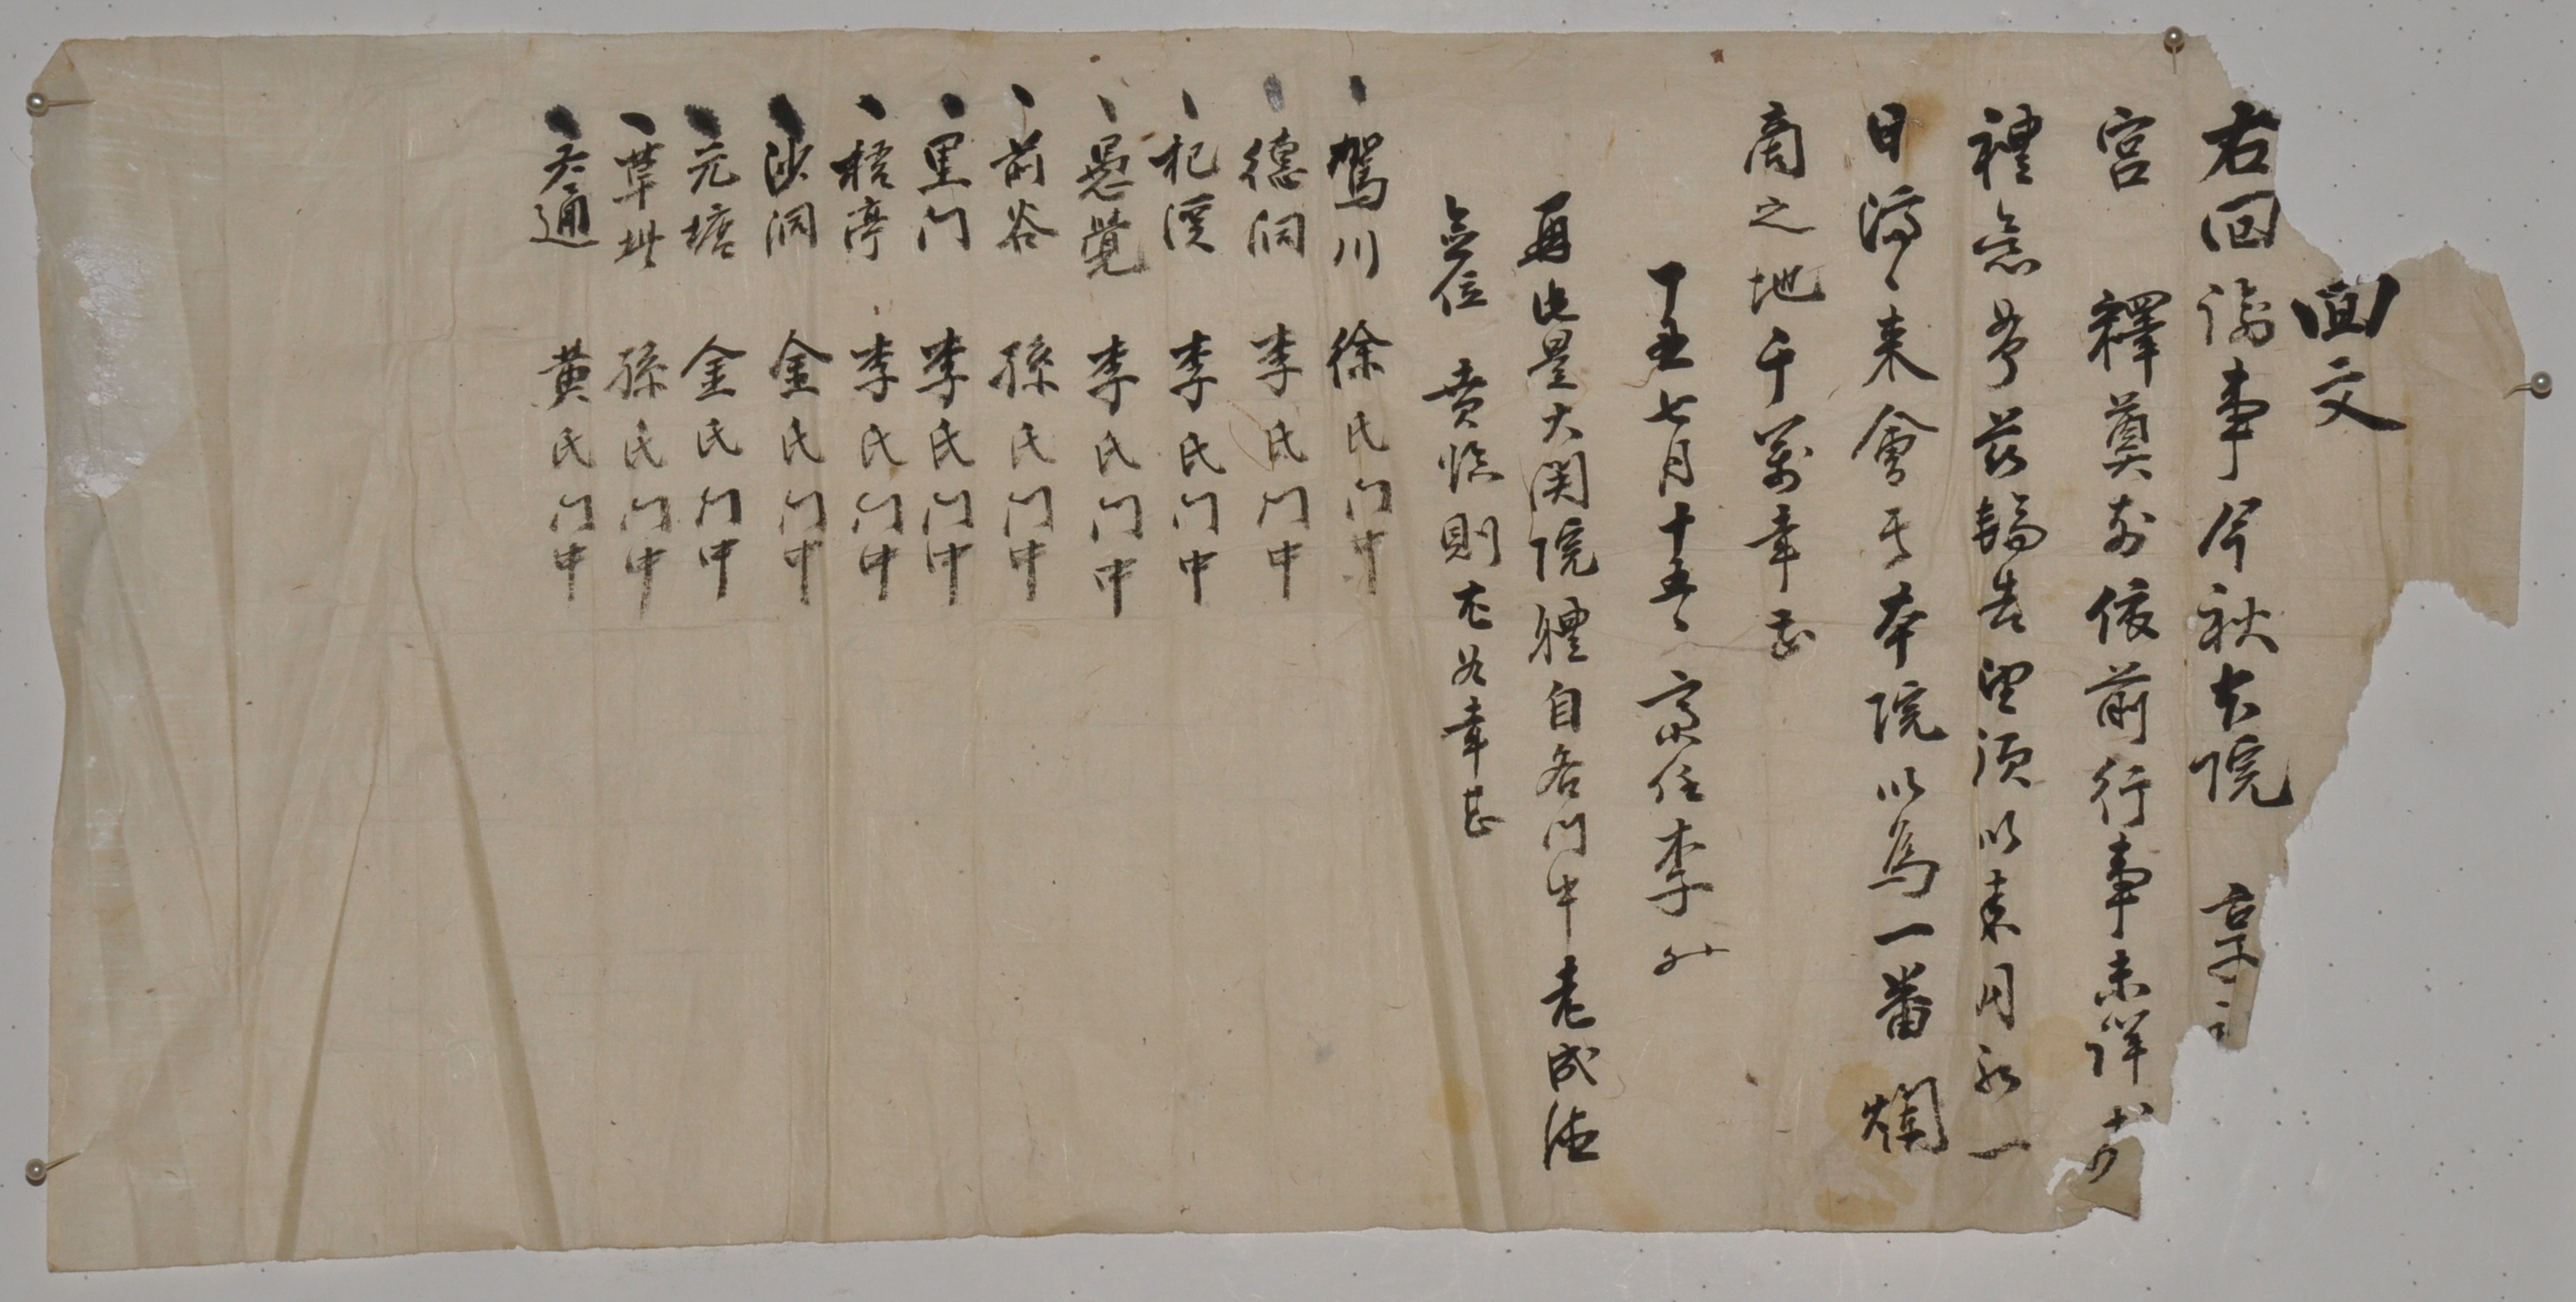 回文
右回諭事今秋本院 享
宮 釋奠前依前行事未詳
禮 玆輪告望須以來月初一
日濟〻來會于本院以爲一番爛
商之地千萬幸甚
丁丑七月十五〻 齋任李
再此是大関院體自各門中老成法
位 賁臨則尤爲幸甚
鴛川 徐氏門中
德洞 李氏門中
杞溪 李氏門中
愚覺 李氏門中
前谷 孫氏門中
里门 李氏門中
梧亭 李氏門中
沙洞 金氏門中
元塘 金氏門中
草 孫氏門中
通 黄氏門中